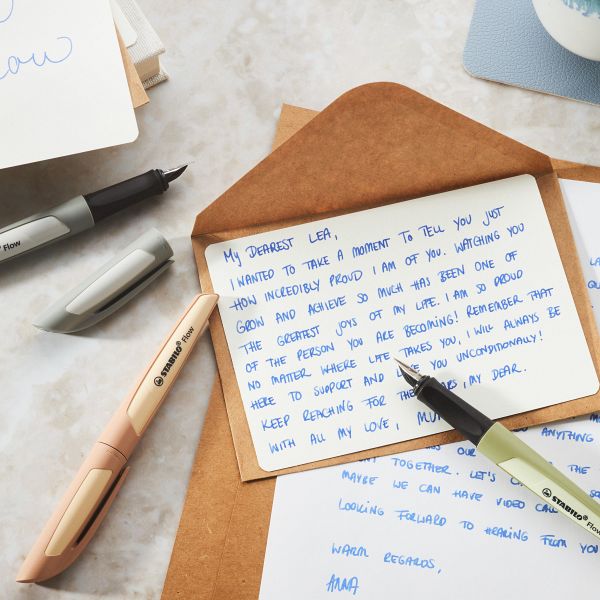 ow
Flow
STABILO Flow
My DEAREST LEA,
I WANTED TO TAKE A MOMENT TO TELL YOU JUST
HOW INCREDIBLY PROUD I AM OF YOU. WATCHING YOU
GROW AND ACHIEVE SO MUCH HAS BEEN ONE OF
THE GREATEST JOYS OF MY LIFE. I AM SO PROUD
OF THE PERSON YOU ARE BECOMING! REMEMBER THAT
NO MATTER WHERE LIFE TAKES YOU, I WILL ALWAYS BE
HERE TO SUPPORT AND YOU UNCONDITIONALLY!
KEEP REACHING FOR THE , MY DEAR.
WITH ALL MY LOVE,
STABILO Flow
ANYTHING
OUR THE
TOGETHER. LET'S
MAYBE WE CAN HAVE VIDEO
LOOKING FORWARD TO HEARING FROM YOU
WARM REGARDS,
ANNA